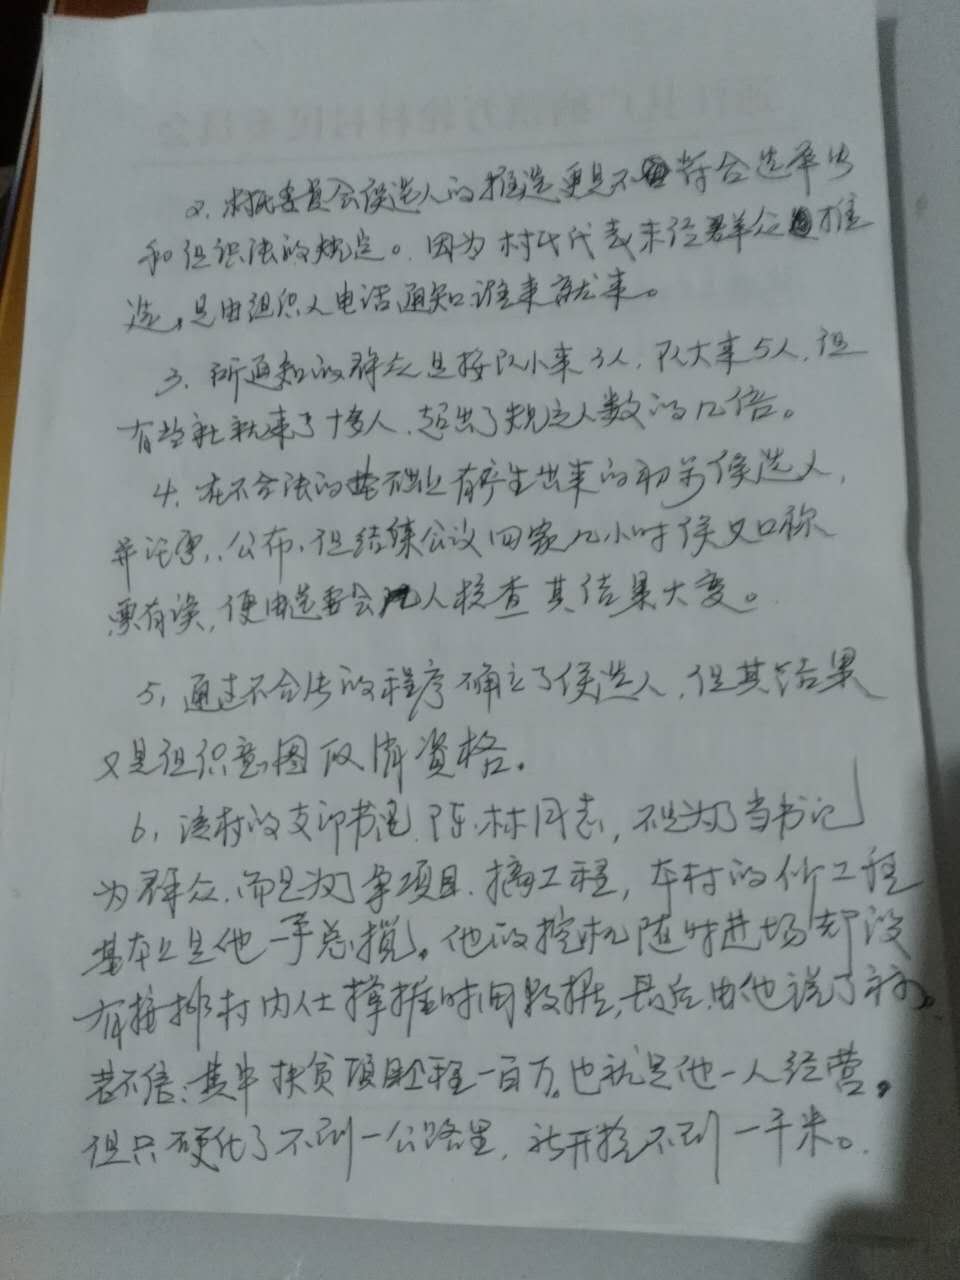 2. 村民委员会侯选人的推选更是不符合选举法
和组织法的规定。因为村民代表未经群众推
选,是由组织人电话通知谁来就来。
3. 所通知的群众是按队小来3人,队大来5人,但
有些社就来了十多人,超出了规定人数的几倍。
4. 在不合法的基础上有产生出来的初步侯选人,
并公布,但结束会议回家几小时侯又口称
票有误,便由选委会几人核查其结果大变。
5, 通过不合法的程序确立了侯选人,但其结果
又是组织意图取消资格。
6, 该村的支部书记陈林同志,不是为了当书记
为群众,而是为了拿项目,搞工程,本村的所工程
基本上是他一手总揽。他的挖机随时进场却没
有按排村内人士掌握时间数据,最后由他说了算。
若不信:其中扶贫项目工程一百万。也就是他一人经营。
但只硬化了不到一公路里,新开挖不到一千米。